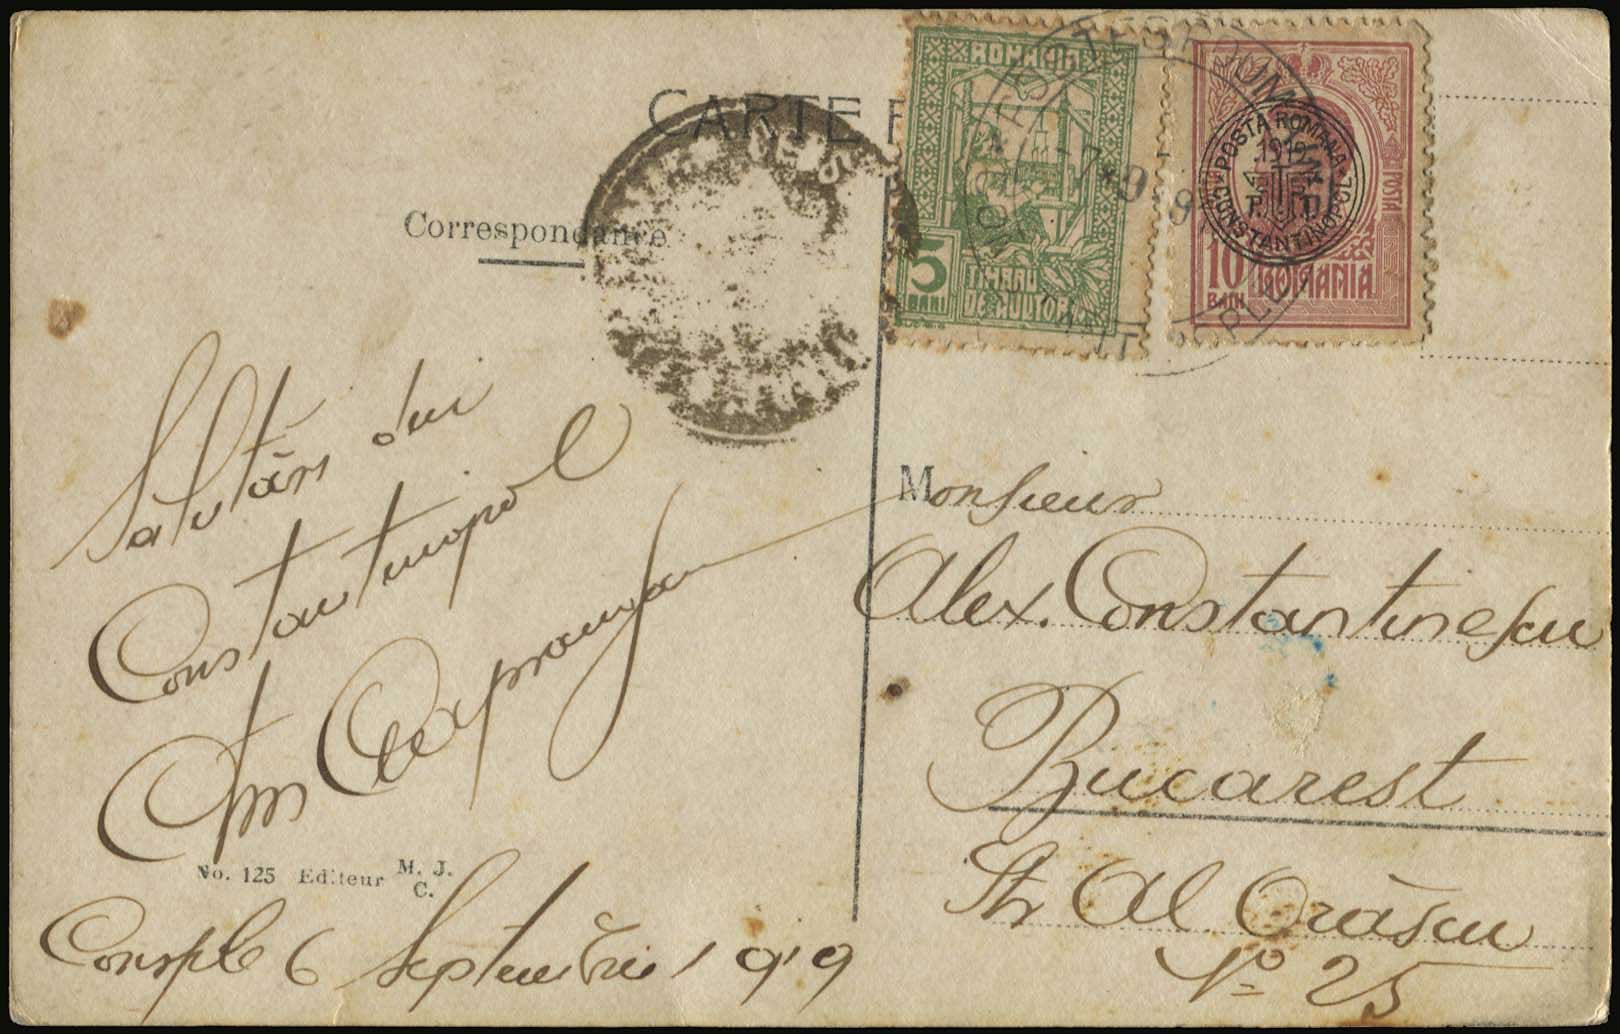 CARTE P
Correspondance
ROMANIA
5
BANI
TIMBRU
DE AJUTOR
POSTA ROMANA
1919
P. D.
CONSTANTINOPOL
POSTA
10
BANI
ROMANIA
7 * 9
Salutări din
Constantinopol
Monsieur
Alex. Constantinescu
Bucarest
Str Al Orăscu
No 25
No. 125 Editeur M. J. C.
Consple 6 Septembrie 1919